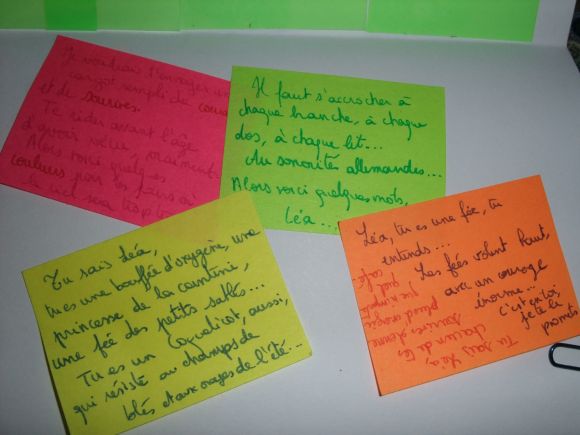 Je voudrais t'envoyer un
cargot rempli de
et de sourires.
Te rider avant l'âge
d'avoir vécu, vraiment
Alors voici quelques
couleurs pour les jours où
le ciel sera
Il faut s'accrocher à
chaque branche, à chaque
dos, à chaque lit...
Au sonorités allemandes...
Alors voici quelques mots,
Léa...
Tu sais Léa,
tu es une bouffée d'oxygène, une
princesse de la comptine,
une fée des petits sablés...
Tu es un Coquelicot, aussi,
qui résiste au champs de
blés et aux orages de l'été...
Léa, tu es une fée, tu
entends...
Les fées volent haut,
avec un courage
énorme...
c'est en toi,
je te le
promets
Tu sais Léa,
chacun de tes
sourires donne